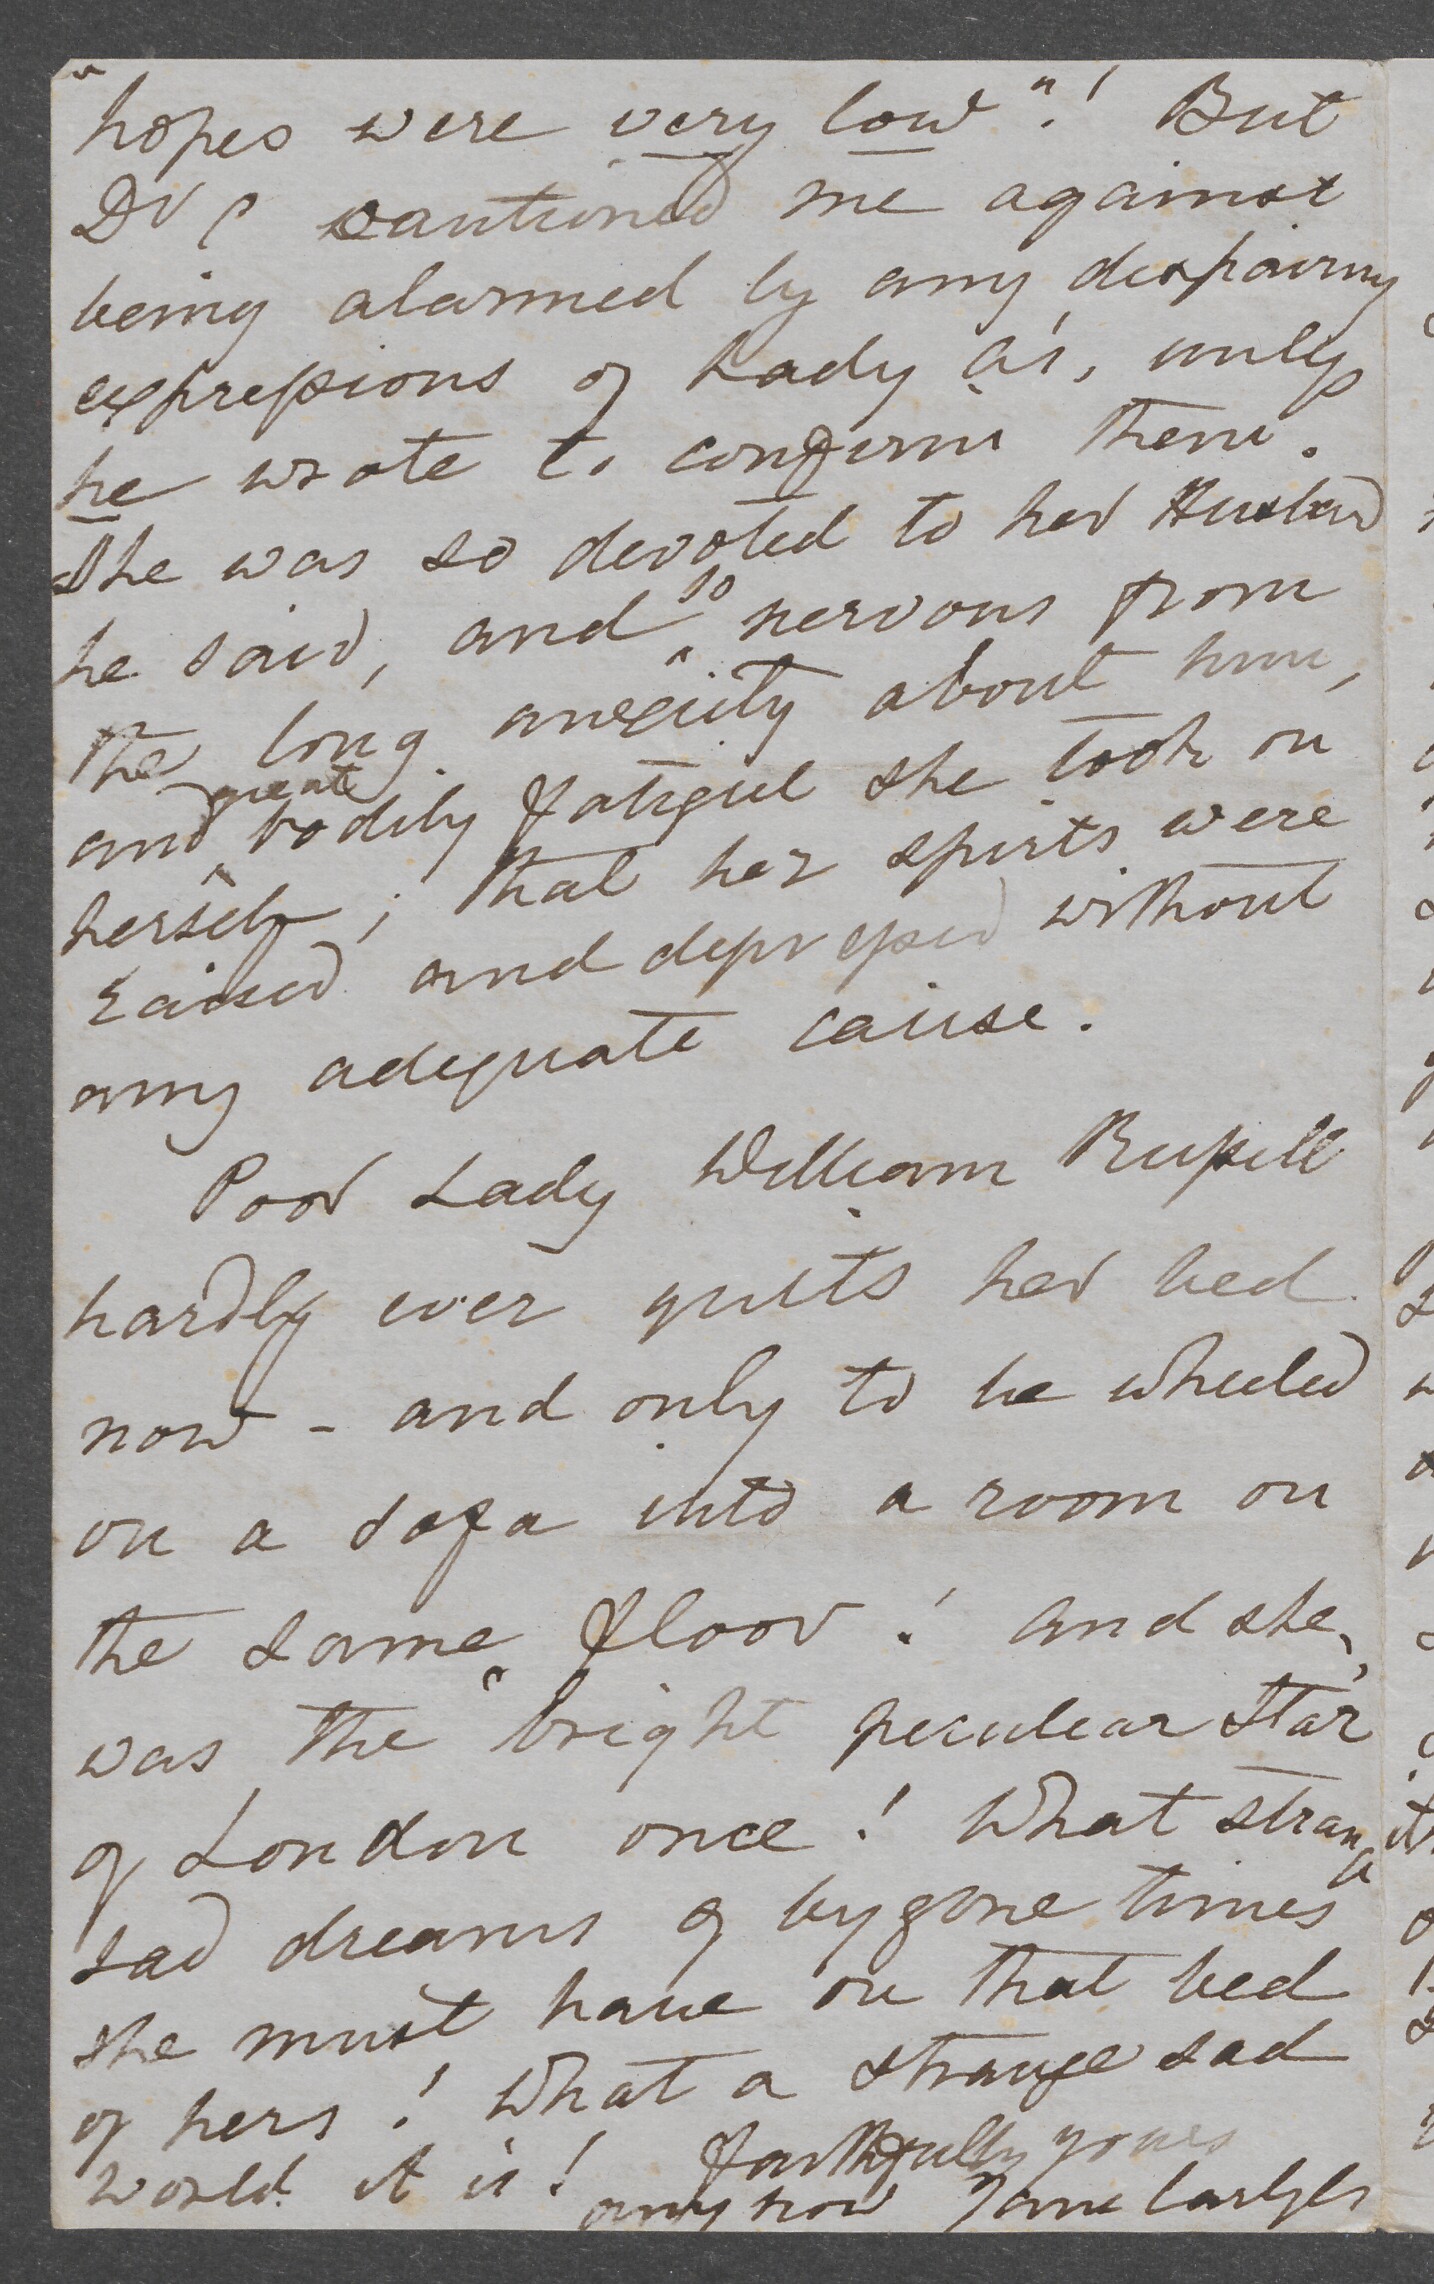 "hopes were very low"! But
Dr C cautioned me against
being alarmed by any despairing
expressions of Lady A's, unless
he wrote to confirm them.
She was so devoted to her Husband
he said, and so nervous from
the long anxiety about him,
and great bodily fatigue she took on
herself; that her spirits were
raised and depressed without
any adequate cause.
Poor Lady William Russell
hardly ever quits her bed
now - and only to be wheeled
on a sofa into a room on
the same floor! and she,
was the "bright peculear Star
of London once! What strang
sad dreams of bygone times
she must have on that bed
of hers! What a strange sad
world it is! faithfully yours
anyhow Jane Carlyle